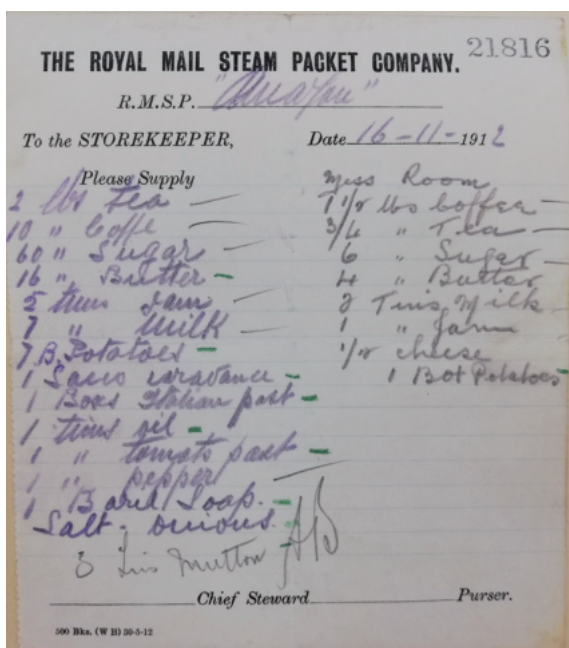 21816
THE ROYAL MAIL STEAM PACKET COMPANY.
R.M.S.P.
To the STOREKEEPER, Date 16-11-1912
Please Supply
2 lbs Tea
10 " Coffe
60 " Sugar
16 " Butter
5 tins Jam
7 " Milk
7 B. Potatoes
1 Sacco caravance
1 Boxs Italian past
1 tins oil
1 " tomato past
1 " pepper
1 Barel Soap.
Salt; onions.
3 Tins Mutton
Mess Room
1 1/2 lbs Coffee
3/4 " Tea
6 " Sugar
4 " Butter
2 Tins Milk
1 " Jam
1/2 cheese
1 Bot Potatoes
Chief Steward Purser.
500 Bks. (W B) 30-5-12